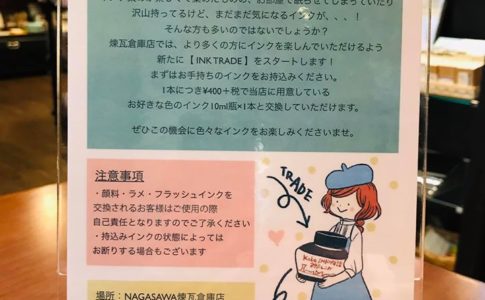 沢山持ってるけど、まだまだ気になるインクが、、、！
そんな方も多いのではないでしょうか？
煉瓦倉庫店では、より多くの方にインクを楽しんでいただけるよう
新たに【 INK TRADE 】をスタートします！
まずはお手持ちのインクをお持込みください。
1本につき¥400＋税で当店に用意している
お好きな色のインク10ml瓶×1本と交換していただけます。
ぜひこの機会に色々なインクをお楽しみくださいませ。
注意事項
・顔料・ラメ・フラッシュインクを
交換されるお客様はご使用の際
自己責任となりますのでご了承ください
・持込みインクの状態によっては
お断りする場合もございます
TRADE
Kobe INK物語
場所：NAGASAWA煉瓦倉庫店